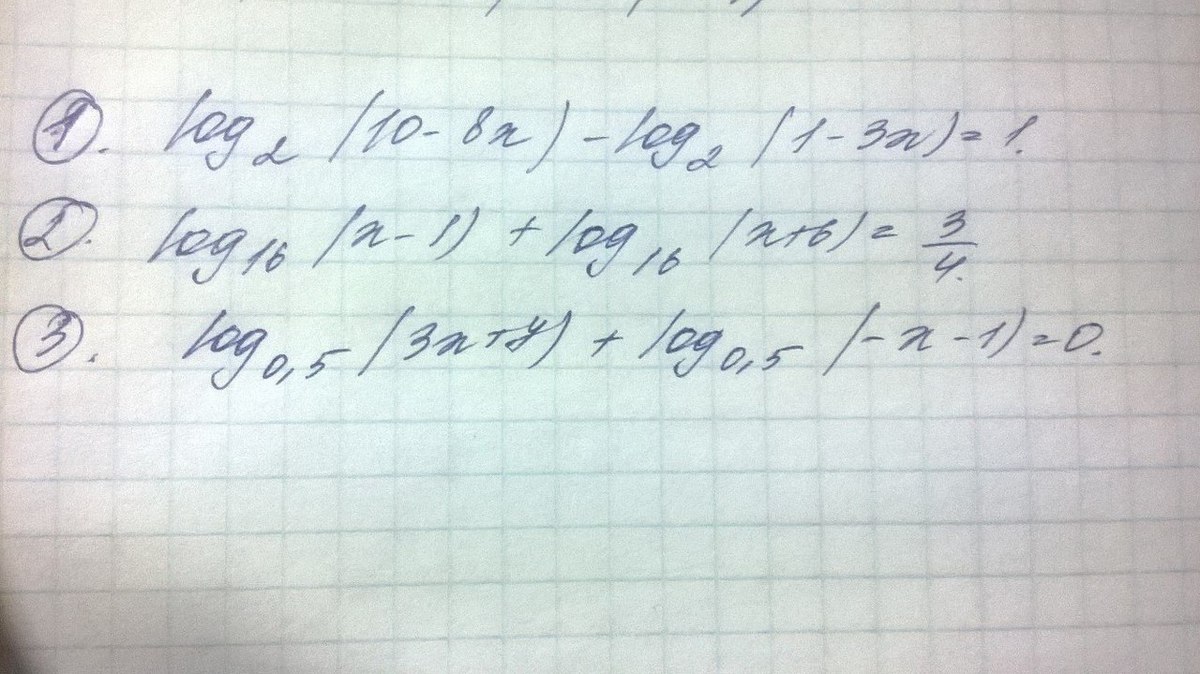 1. log₂ (10 - 8x) - log₂ (1 - 3x) = 1.
2. log₁₆ (x - 1) + log₁₆ (x + 6) = 3/4.
3. log₀,₅ (3x + 7) + log₀,₅ (-x - 1) = 0.